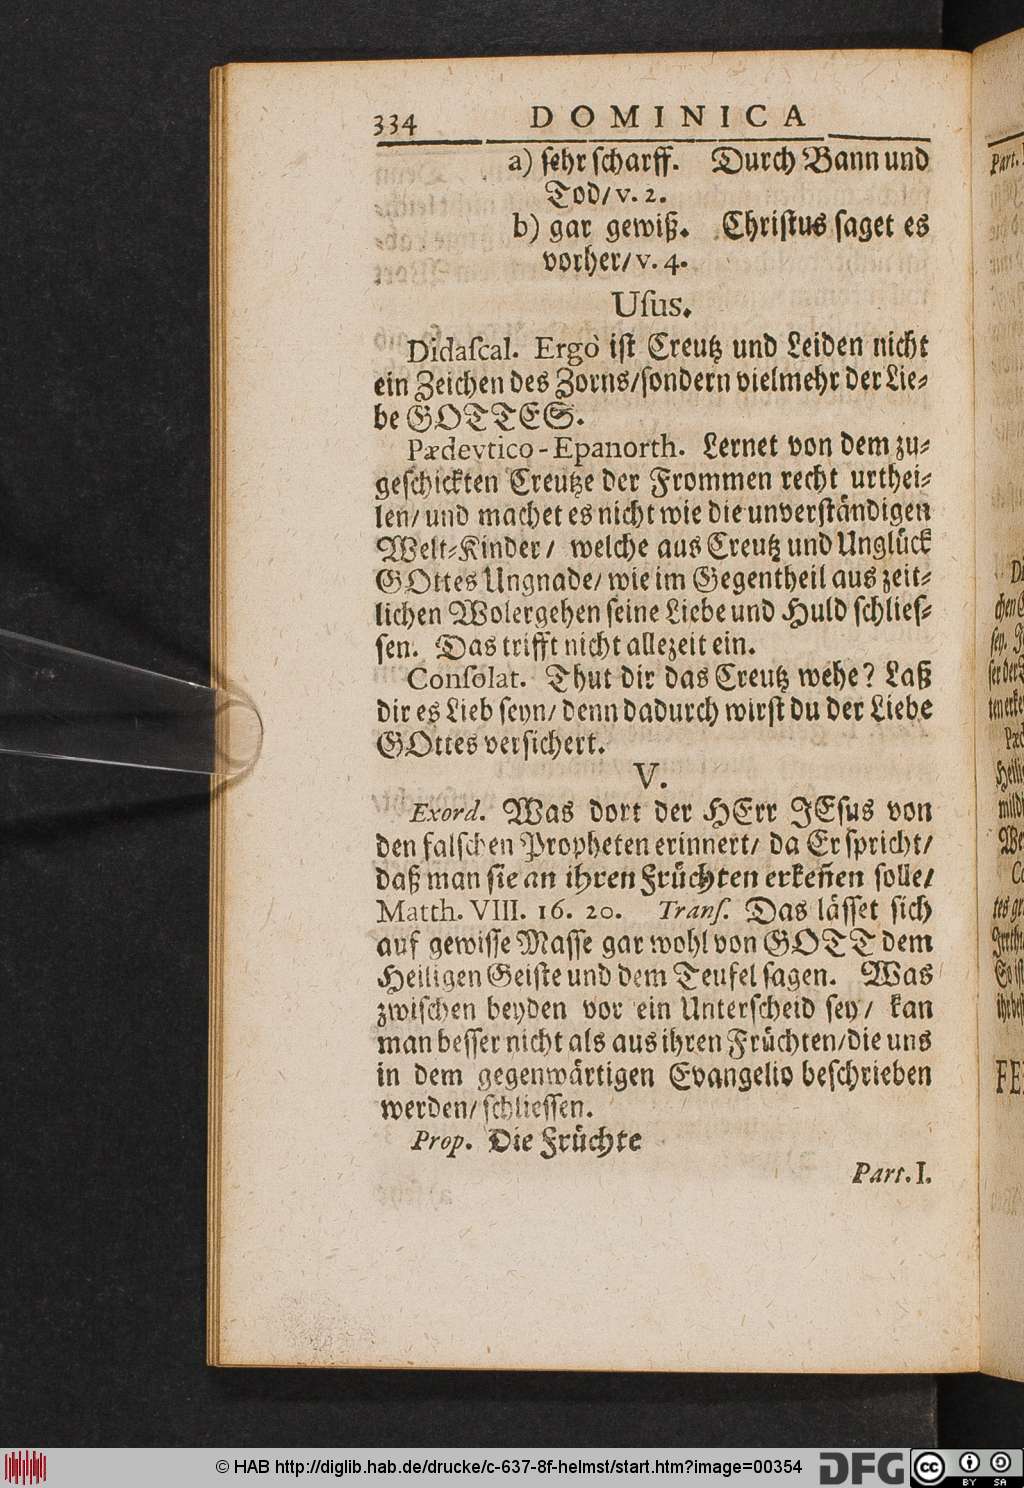 334 DOMINICA
a) sehr scharff. Durch Bann und
Tod/ v. 2.
b) gar gewiß. Christus saget es
vorher/ v. 4.
Uſus.
Didaſcal. Ergò ist Creutz und Leiden nicht
ein Zeichen des Zorns/ sondern vielmehr der Lie-
be GOTTES.
Pædevtico-Epanorth. Lernet von dem zu-
geschickten Creutze der Frommen recht urthei-
len/ und machet es nicht wie die unverständigen
Welt-Kinder/ welche aus Creutz und Unglück
GOttes Ungnade/ wie im Gegentheil aus zeit-
lichen Wolergehen seine Liebe und Huld schlies-
sen. Das trifft nicht allezeit ein.
Conſolat. Thut dir das Creutz wehe? Laß
dir es Lieb seyn/ denn dadurch wirst du der Liebe
GOttes versichert.
V.
Exord. Was dort der HErr JEsus von
den falschen Propheten erinnert/ da Er spricht/
daß man sie an ihren Früchten erkeñen solle/
Matth. VIII. 16. 20. Tranſ. Das lässet sich
auf gewisse Masse gar wohl von GOTT dem
Heiligen Geiste und dem Teufel sagen. Was
zwischen beyden vor ein Unterscheid sey/ kan
man besser nicht als aus ihren Früchten/ die uns
in dem gegenwärtigen Evangelio beschrieben
werden/ schliessen.
Prop. Die Früchte
Part. I.
© HAB http://diglib.hab.de/drucke/c-637-8f-helmst/start.htm?image=00354
DFG
cc BY SA